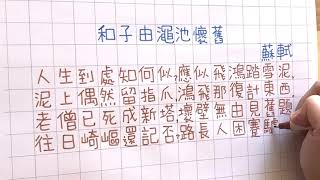 和子由澠池懷舊
蘇軾
人生到處知何似,應似飛鴻踏雪泥,
泥上偶然留指爪,鴻飛那復計東西,
老僧已死成新塔,壞壁無由見舊題,
往日崎嶇還記否,路長人困蹇驢